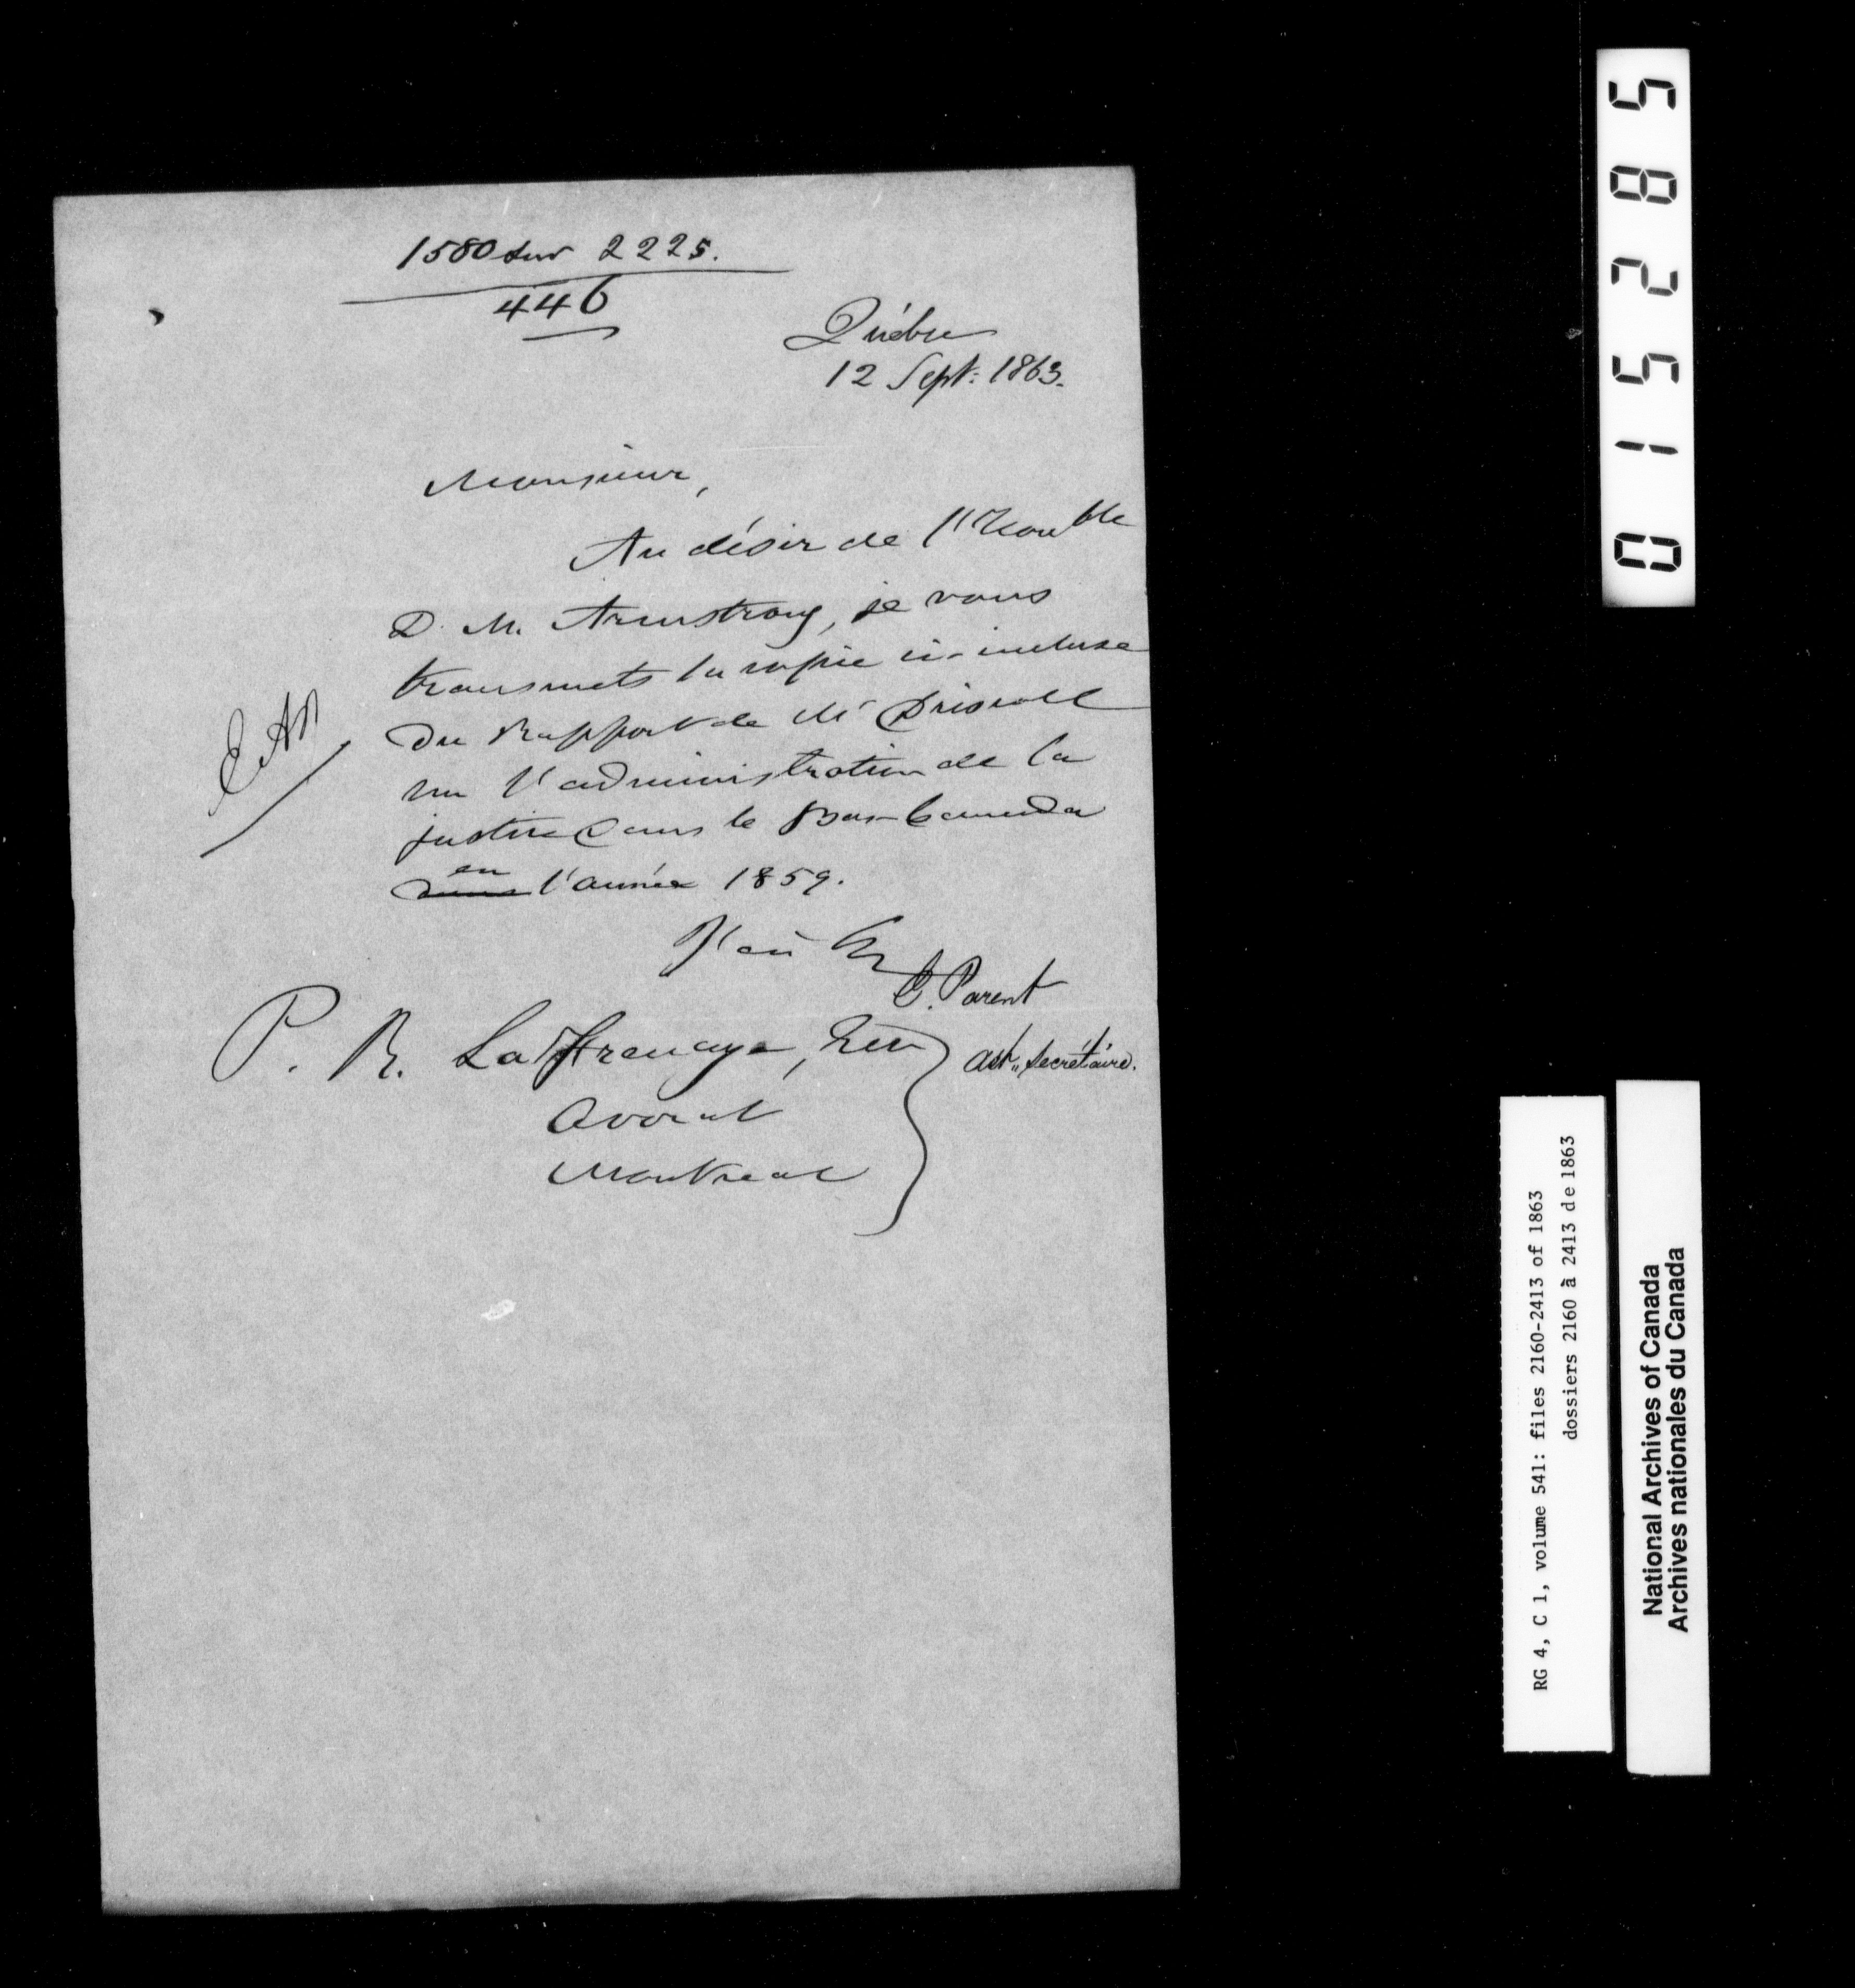 1580 sur 2225.
446
Québec
12 Sept: 1863.
Monsieur,
Au désir de l'Honble
D. M. Armstrong, je vous
transmets la copie ci-incluse
du Rapport de Mr Driscoll
sur l'administration de la
justice dans le Bas-Canada
en
dans l'année 1859.
J'ai
E. Parent
Ast. Secrétaire.
P. R. LaFrenaye, Ecr
Avocat
Montreal
015285
RG 4, C 1, volume 541: files 2160-2413 of 1863
dossiers 2160 à 2413 de 1863
National Archives of Canada
Archives nationales du Canada